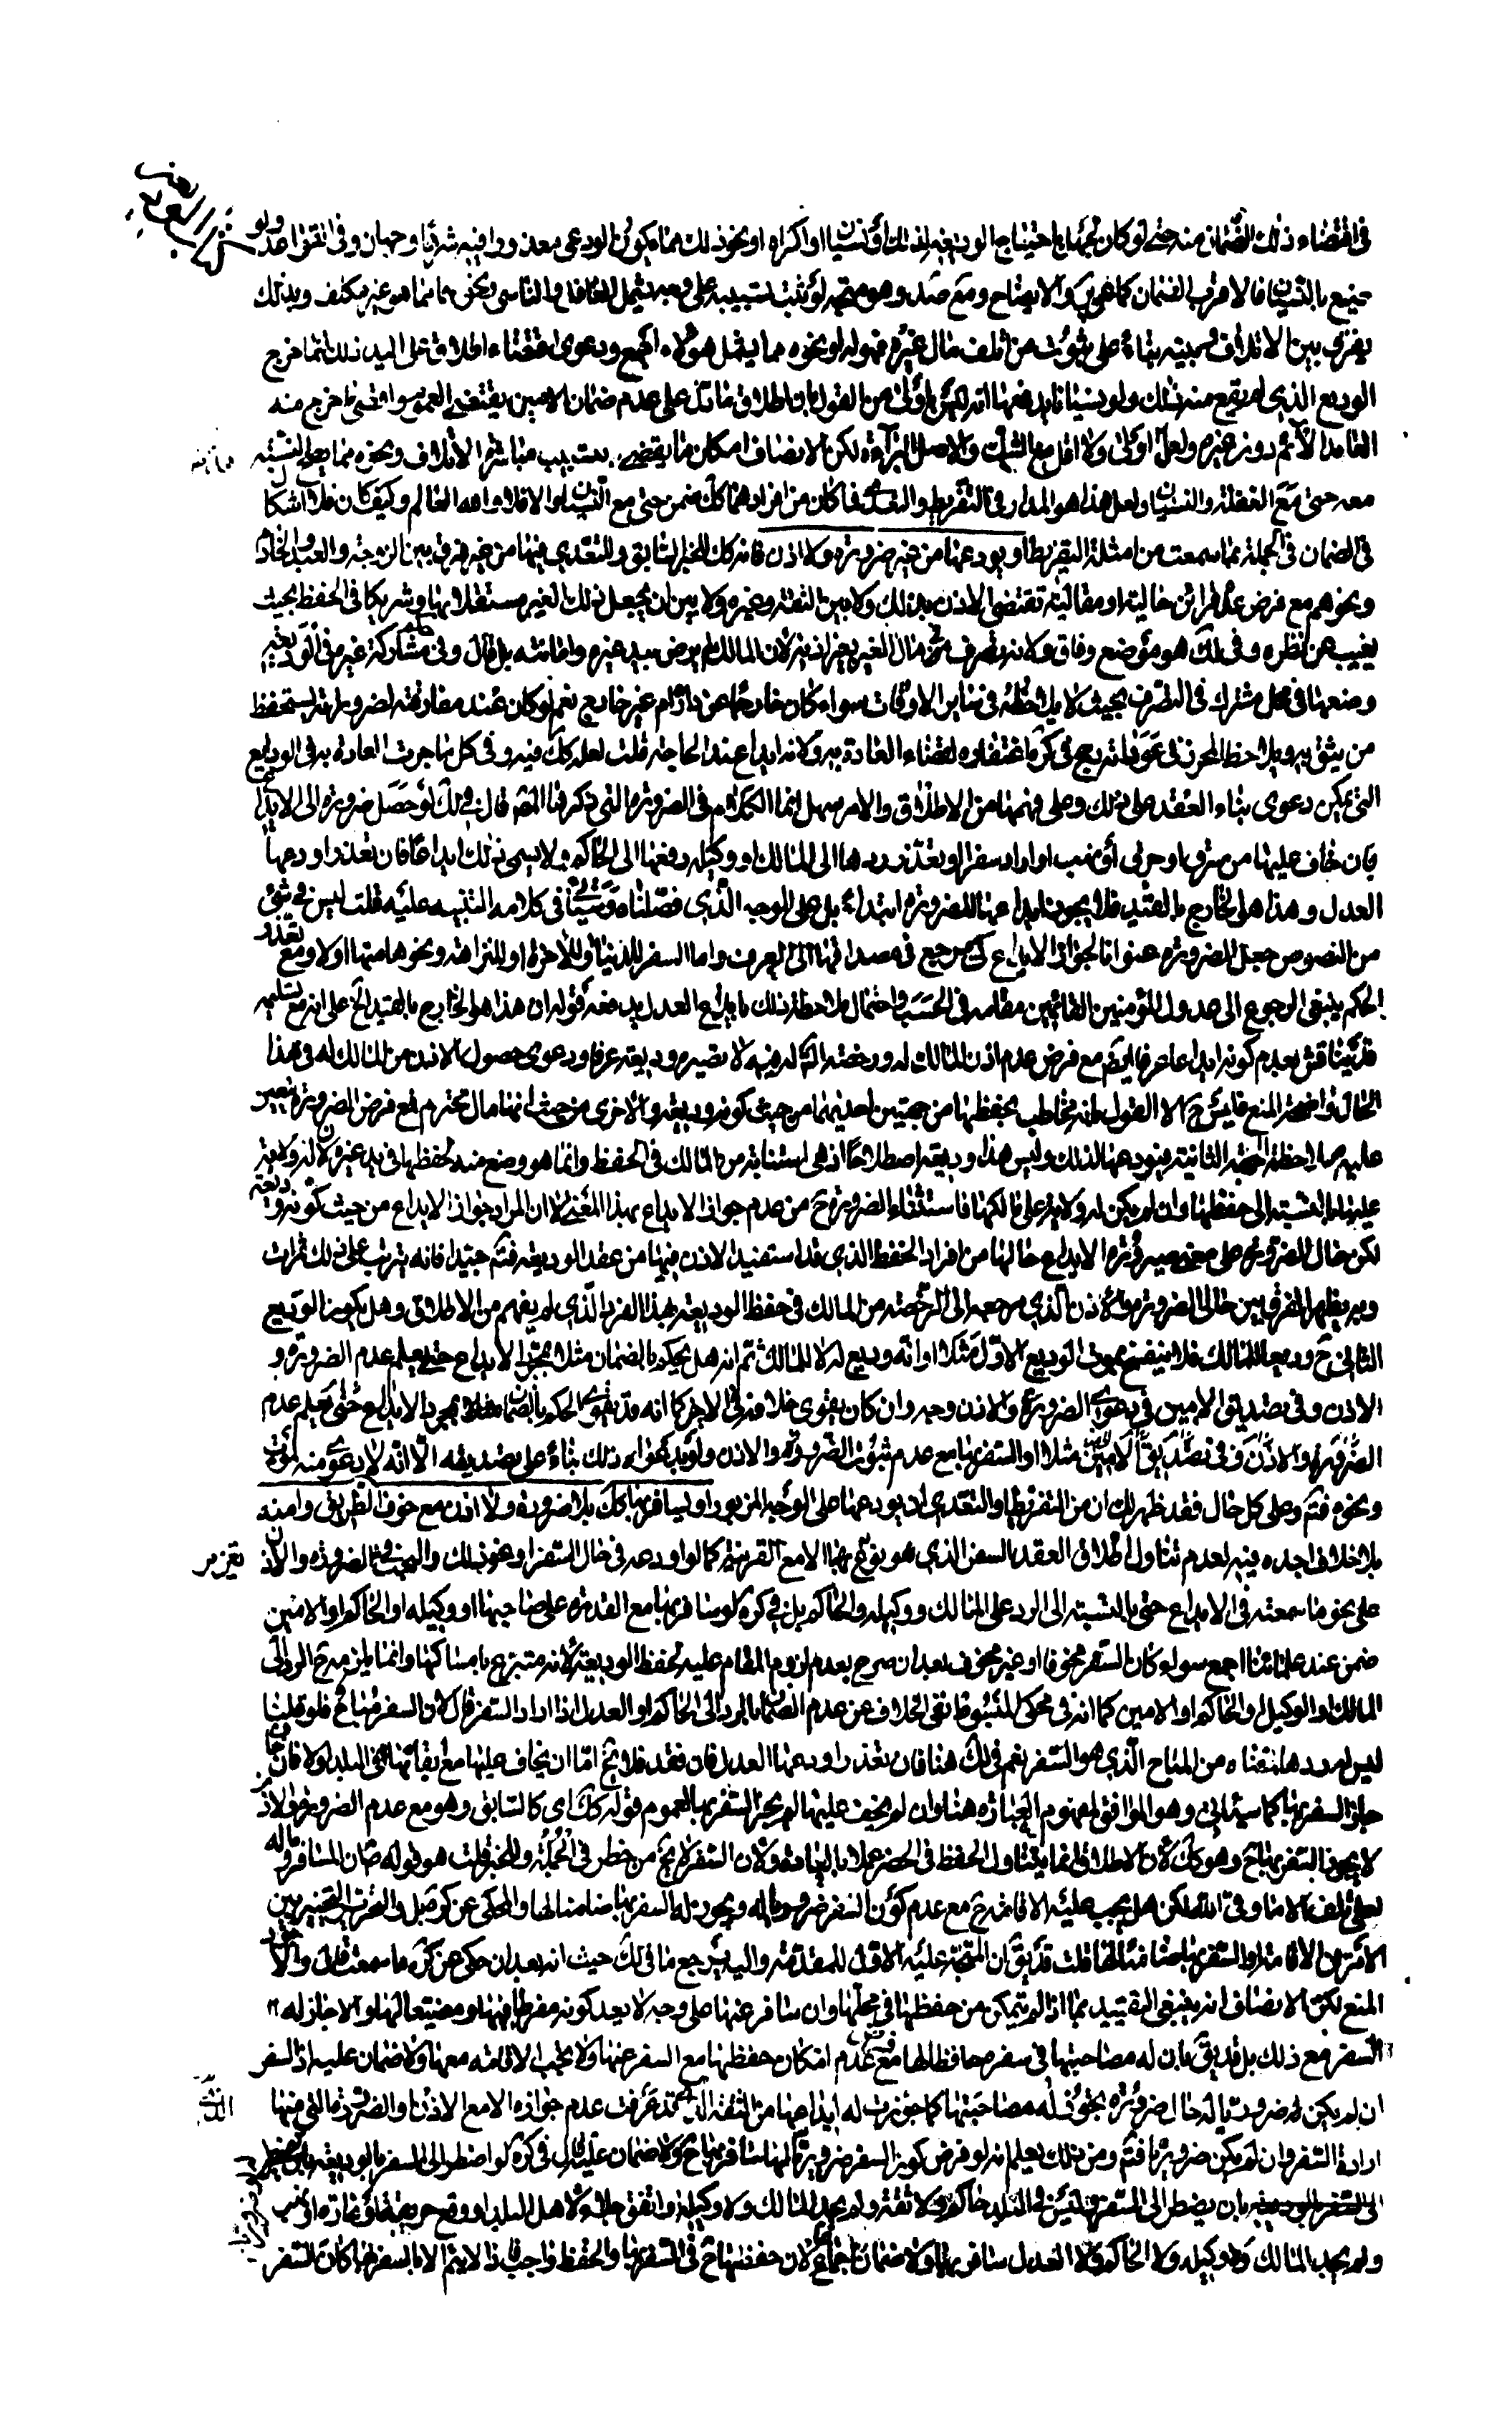 في اقتضاء ذلك الضمان منه حتى لو كان لجهله باحتياج الوديعة لذلك أو نسيان او اكراه او نحو ذلك مما يكون الودعي معذورا فيه شرعا وجهان وفي القواعد ولو
ضيع بالنسيان فالاقرب الضمان كما عن ير والايضاح ومع صد وهو متجه لو ثبت سببيته على وجه يشمل الغافل والناسي ونحوهما مما هو غير مكلف وبذلك
يفرق بين الاتلاف وسببيته بناء على ثبوت من اتلف مال غيره فهو له او نحوه مما يشمل هؤلاء اجمع ودعوى اقتضاء اطلاق على اليد ذلك انما خرج
الوديع الذي لم يقع منه ذلك ولو نسيانا يدفعها انه ليس باولى من القول بان اطلاق ما دل على عدم ضمان الامين يقتضي العموم واقصى ما خرج منه
العامد الآثم دون غيره ولعل اولى ولا اقل مع الشك والاصل البرائة لكن الانصاف امكان ما يقتضي بتسبيب مباشرة الاتلاف ونحوه مما يصلح النسبة
معه حتى مع الغفلة والنسيان ولعل هذا هو المدار في التفريط والتعدي فما كان من افرادهما كك ضمن حتى مع النسيان والا فلا والله العالم وكيف كان فلا اشكال
في الضمان في الجملة بما سمعت من امثلة التفريط او يودعها من غير ضرورة ولا اذن فانه كك للخبر السابق وللتعدي فيهما من غير فرق بين الزوجة والعبد والخادم
ونحوهم مع فرض عدم قرائن حالية او مقالية تقتضي الاذن بذلك ولا بين الثقة وغيره ولا بين ان يجعل ذلك الغير مستقلا بها وشريكا في الحفظ بحيث
يغيب عن نظره وفي لك هو موضع وفاق ولانه تصرف في مال الغير بغير اذنه لان المالك لم يرض بيد غيره وامانته بل قال وفي حكمه مشاركة غيره في الوديعة
وضعها في محل مشترك في التصرف بحيث لا يلاحظه في سائر الاوقات سواء كان خارجا عن داره ام غير خارج نعم لو كان عند مفارقته لضروراته يستحفظ
من يثق به ويلاحظ الحرز في عوداته رجح في كره اغتفاره لقضاء العادة به ولانه ايداع عند الحاجة قلت لعله كك فيه وفي كل ما جرت العادة به في الودايع
التي يمكن دعوى بناء العقد على ذلك وعلى فهمها من الاطلاق والامر سهل انما الكلام في الضرورة التي ذكرها المصنف قال في لك لو حصل ضرورة الى الايداع
بان خاف عليها من سرقة او حرق او نهب او اراد سفرا وتعذر ردها الى المالك او وكيله دفعها الى الحاكم ولا يسمى ذلك ايداعا فان تعذر اودعها
العدل وهذا هو الخارج بالقيد فلا يجوز ايداعها للضرورة ابتداء بل على الوجه الذي فصلناه وسيأتي في كلامه التنبيه عليه قلت ليس في شئ
من النصوص جعل الضرورة عنوانا لجواز الايداع كي يرجع في مصداقها الى العرف واما السفر للدنيا وللآخرة او للنزاهة ونحوها منها اولا ومع تعذر
الحكم ينبغي الرجوع الى عدول المؤمنين القائمين مقامه في الحسب واحتمال ملاحظة ذلك بايداع العدل يدفعه قوله ان هذا هو الخارج بالقيد الخ على انه مع تسليمه
قد يناقش بعدم كونه ايداعا عرفا ايضا مع فرض عدم اذن المالك له ورخصة الشارع فيه لا تصيره وديعة عرفا ودعوى حصول الاذن من المالك له في هذا
الحال واضحة المنع فليس ح الا القول بانه مخاطب بحفظها من جهتين احديهما من حيث كونه وديعة والاخرى من حيث انها مال محترم فمع فرض الضرورة يتعين
عليه ملاحظة الجهة الثانية فيودعها لذلك وليس هذا وديعة اصطلاحا اذ هي استنابة من المالك في الحفظ وانما هو وضع منه لحفظها في يد غيره لان له ولاية
عليها بالنسبة الى حفظها وان لم يكن له ولاية على مالكها فاستثناء الضرورة ح من عدم جواز الايداع بهذا المعنى لا ان المراد جواز الايداع من حيث كونه وديعة
لكن حال الضرورة على معنى صيرورة الايداع حالها من افراد الحفظ الذي قد استفيد الاذن فيها من عقد الوديعة فتم جيدا فانه يترتب على ذلك ثمرات
وبه يظهر الفرق بين حالي الضرورة والاذن الذي مرجعه الى الرخصة من المالك في حفظ الوديعة بهذا الفرد الذي لم يفهم من الاطلاق وهل يكون الوديع
الثاني ح وديعا للمالك فلا ينفسخ بموت الوديع الاول مثلا او انه وديع له لا للمالك ثم انه هل يحكم بالضمان مثلا بمجرد الايداع حتى يعلم عدم الضرورة و
الاذن وفي تصديق الامين في دعوى الضرورة والاذن وجه وان كان يقوى خلافه في الاخير كما انه قد يقوى الحكم بالضمان مثلا بمجرد الايداع حتى يعلم عدم
الضرورة والاذن وفي تصديق الامين مثلا او السفر بها مع عدم ثبوت الضرورة والاذن ولو بدعواه ذلك بناء على تصديقه الا انه لا دعوى منه لموت
ونحوه فتم وعلى كل حال فقد ظهر لك ان من التفريط والتعدي ان يودعها على الوجه المزبور او يسافر بها كك بلا ضرورة ولا اذن مع خوف الطريق وامنه
بلا خلاف اجده فيه لعدم تناول اطلاق العقد السفر الذي هو تغرير بها الا مع القرينة كما لو اودعه في حال السفر او نحو ذلك والبحث في الضرورة والاذن
على نحو ما سمعته في الايداع حتى بالنسبة الى الرد على المالك ووكيله والحاكم بل في كره لو سافر بها مع القدرة على صاحبها او وكيله او الحاكم او الامين
ضمن عند علمائنا اجمع سواء كان السفر مخوفا او غير مخوف بعد ان صرح بعدم لزوم المقام عليه لحفظ الوديعة لانه متبرع بامساكها وانما يلزمه ح الرد الى
المالك او الوكيل او الحاكم او الامين كما انه في محكي المبسوط نفى الخلاف عن عدم الضمان بالرد الى الحاكم او العدل اذا اراد السفر قال لان السفر مباح فلو قلنا
ليس له ردها منعناه من المباح الذي هو السفر نعم في لك هنا فان تعذر اودعها العدل فان فقد فلا يخ اما ان يخاف عليها مع بقائها في البلد او لا فان خاف
جاز السفر بها كما سيأتي وهو الموافق لمفهوم العبارة هنا وان لم يخف عليها لم يجز السفر بها لعموم قوله كك اى كالسابق وهو مع عدم الضرورة والاذن
لا يجوز السفر بها ح وهو كك لان الاطلاق انما يتناول الحفظ في الحضر عملا بالعادة ولان السفر لا يخ من خطر في الجملة وللخبر قلت هو قوله صلى ان المسافر وماله
لعلى تلف الا ما وقى الله لكن هل يجب عليه الاقامة ح مع عدم كون السفر ضروريا له ويجوز له السفر بها ضامنا لها والمحكي عن كره صل والمختار التخيير بين
الامرين الاقامة او السفر بها ضامنا لها قلت قد يق ان المتجه عليه الاول للمقدمة واليه يرجع ما في لك حيث انه بعد ان حكى عن كره ما سمعت قال والاقوى
المنع لكن الانصاف انه ينبغي التقييد بما اذا لم يتمكن من حفظها في محلها وان سافر عنها على وجه لا يعد كونه مفرطا فيها ومضيعا لها والا جاز له
السفر مع ذلك بل قد يق بان له مصاحبتها في سفره محافظا لها مع فرض عدم امكان حفظها مع السفر عنها ولا يجب الاقامة معها ولا ضمان عليه اذ السفر
ان لم يكن ضروريا له حال ضرورة يجوز له مصاحبتها كما جوزت له ايداعها من الثقة الذي قد عرفت عدم جوازه الا مع الاذن او الضرورة التي منها
ارادة السفر وان لم يكن ضروريا فتم ومن ذلك يعلم انه لو فرض كون السفر ضروريا لها سافر بها ح ولا ضمان عليه بل في كره لو اضطر الى السفر بالوديعة بان يضطر
الى السفر بان يضطر الى السفر وليس في البلد حاكم ولا ثقة ولم يجد المالك ولا وكيله او اتفق جلاء لاهل البلد او وقع حريق او غارة او نهب
ولم يجد المالك ولا وكيله ولا الحاكم ولا العدل سافر بها ولا ضمان اجماعا لان حفظها ح في السفر بها والحفظ واجب فاذا لم يتم الا بالسفر بها كان السفر